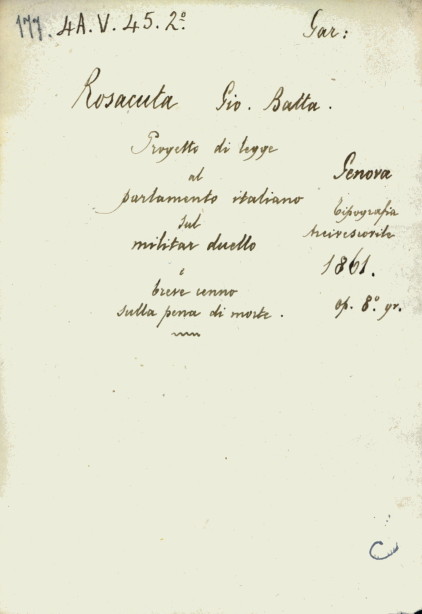 177. 4A.V.45.2º.
Gar:
Rosacuta Gio. Batta.
Progetto di legge
al
parlamento italiano
sul
militar duello
e
breve cenno
sulla pena di morte.
Genova
tipografia
Arcivescovile
1861.
op. 8º gr.
C